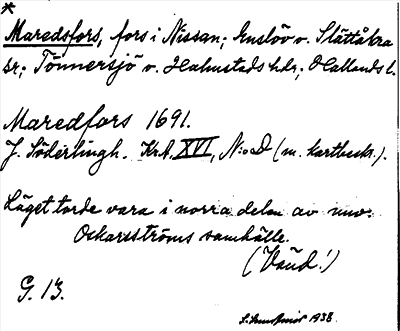 *
Maredsfors, fors i Nissan; Enslöv v. Slättåkra
sr; Tönnersjö v. Halmstads hdr; Hallands l.
Maredfors 1691.
J. Söderlingh. Krt. XVI, N:o D (m. kartbeskr.).
Läget torde vara i norra delen av nuv.
Oskarsströms samhälle.
(Vänd!)
G. 13.
1938